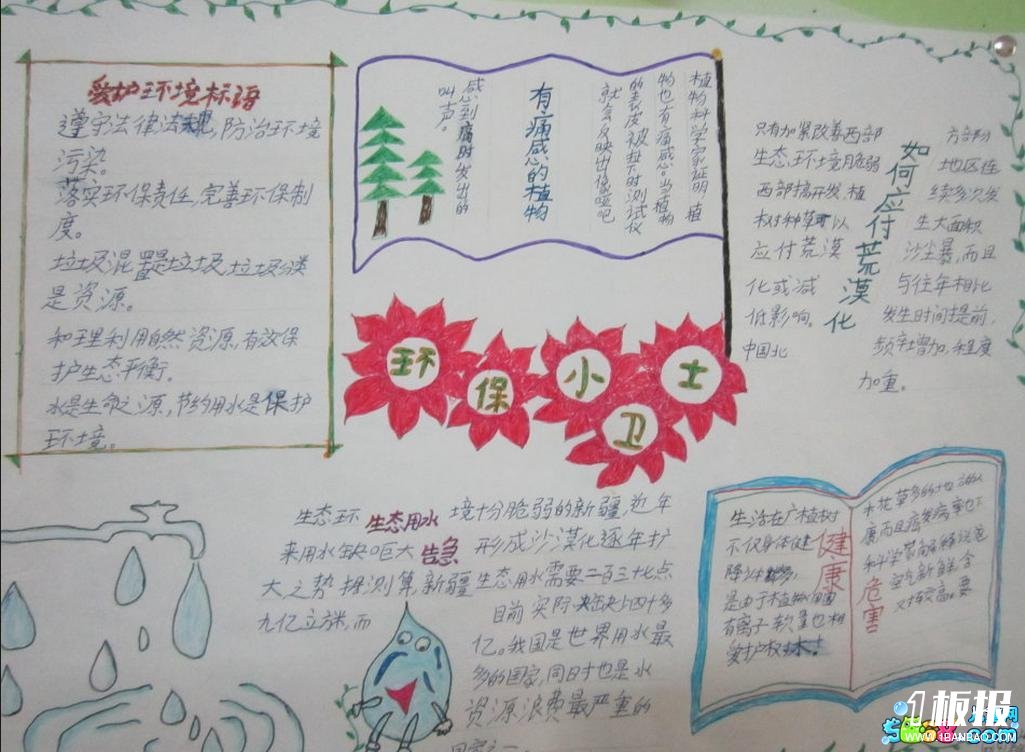 爱护环境标语
遵守法律法规,防治环境
污染。
落实环保责任,完善环保制
度。
垃圾混置是垃圾,垃圾分类
是资源。
和理利用自然资源,有效保
护生态平衡。
水是生命之源,节约用水是保护
环境。
有痛感的植物
植物科学家证明,植
物也有痛感。当植物
的表皮被扯下时测试仪
就会反映出像哑吧
感到痛时发出的
叫声。
环保小卫士
如何应付荒漠化
只有加紧改善西部
生态环境脆弱
西部搞开发,植
树种草可以
应付荒漠
化或减
低影响。
中国北
方部份
地区连
续多次发
生大面积
沙尘暴,而且
与往年相比
发生时间提前,
频率增加,程度
加重。
生态用水
告急
生态环境十分脆弱的新疆,近年
来用水缺口巨大形成沙漠化逐年扩
大之势据测算,新疆生态用水需要二百三十七点
九亿立方米,而目前实际
亿。我国是世界用水最
多的国家,同时也是水
资源浪费最严重的
国家之一
健康
危害
生活在广植树
不仅身体健
是由于植物
有离子
爱护树木!
木花草多的地
康而且
科学家解释说
空气新鲜含
对较高。要
1板报
WWW.1BANBAO.COM